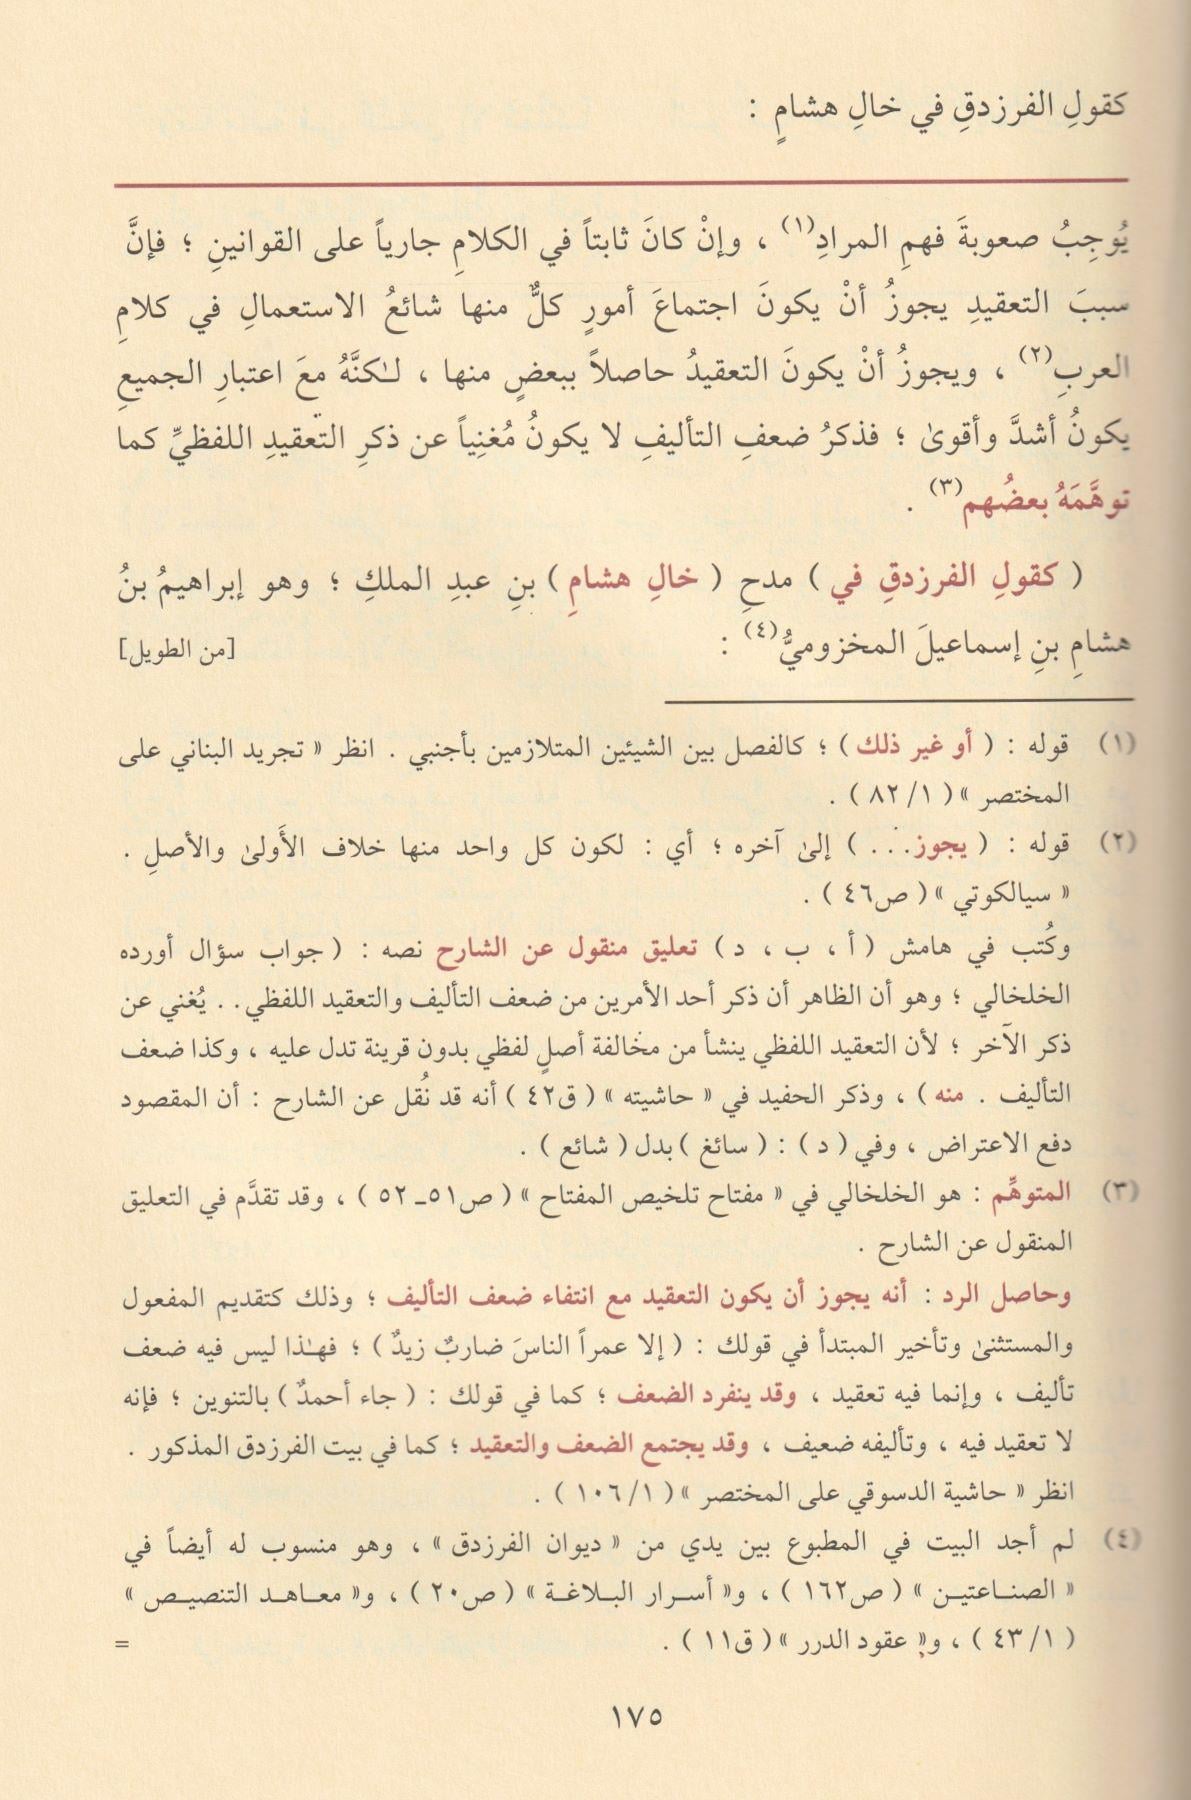 كقولِ الفرزدقِ في خالِ هشامٍ :
يُوجِبُ صعوبةَ فهمِ المرادِ(١) ، وإنْ كانَ ثابتاً في الكلامِ جارياً على القوانينِ ؛ فإنَّ
سببَ التعقيدِ يجوزُ أنْ يكونَ اجتماعَ أمورٍ كلٌّ منها شائعُ الاستعمالِ في كلامِ
العربِ(٢) ، ويجوزُ أنْ يكونَ التعقيدُ حاصلاً ببعضٍ منها ، لـٰكنَّهُ معَ اعتبارِ الجميعِ
يكونُ أشدَّ وأقوىٰ ؛ فذكرُ ضعفِ التأليفِ لا يكونُ مُغنِياً عن ذكرِ التعقيدِ اللفظيِّ كما
توهَّمَهُ بعضُهم(٣) .
( كقولِ الفرزدقِ في ) مدحِ ( خالِ هشامِ ) بنِ عبدِ الملكِ ؛ وهو إبراهيمُ بنُ
هشامِ بنِ إسماعيلَ المخزوميُّ(٤) : [من الطويل]
(١) قوله : ( أو غير ذلك ) ؛ كالفصل بين الشيئين المتلازمين بأجنبي . انظر « تجريد البناني على
المختصر » ( ١/ ٨٢ ) .
(٢) قوله : ( يجوز . . . ) إلىٰ آخره ؛ أي : لكون كل واحد منها خلاف الأَولىٰ والأصلِ .
« سيالكوتي » ( ص٤٦ ) .
وكُتب في هامش ( أ ، ب ، د ) تعليق منقول عن الشارح نصه : ( جواب سؤال أورده
الخلخالي ؛ وهو أن الظاهر أن ذكر أحد الأمرين من ضعف التأليف والتعقيد اللفظي . . يُغني عن
ذكر الآخر ؛ لأن التعقيد اللفظي ينشأ من مخالفة أصلٍ لفظي بدون قرينة تدل عليه ، وكذا ضعف
التأليف . منه ) ، وذكر الحفيد في « حاشيته » ( ق٤٢ ) أنه قد نُقل عن الشارح : أن المقصود
دفع الاعتراض ، وفي ( د ) : ( سائغ ) بدل ( شائع ) .
(٣) المتوهِّم : هو الخلخالي في « مفتاح تلخيص المفتاح » ( ص٥١ـ ٥٢ ) ، وقد تقدَّم في التعليق
المنقول عن الشارح .
وحاصل الرد : أنه يجوز أن يكون التعقيد مع انتفاء ضعف التأليف ؛ وذلك كتقديم المفعول
والمستثنىٰ وتأخير المبتدأ في قولك : ( إلا عمراً الناسَ ضاربٌ زيدٌ ) ؛ فهـٰذا ليس فيه ضعف
تأليف ، وإنما فيه تعقيد ، وقد ينفرد الضعف ؛ كما في قولك : ( جاء أحمدٌ ) بالتنوين ؛ فإنه
لا تعقيد فيه ، وتأليفه ضعيف ، وقد يجتمع الضعف والتعقيد ؛ كما في بيت الفرزدق المذكور .
انظر « حاشية الدسوقي على المختصر » ( ١/ ١٠٦ ) .
(٤) لم أجد البيت في المطبوع بين يدي من « ديوان الفرزدق » ، وهو منسوب له أيضاً في
« الصناعتين » ( ص١٦٢ ) ، و« أسرار البلاغة » ( ص٢٠ ) ، و« معاهد التنصيص »
( ١/ ٤٣ ) ، و« عقود الدرر » ( ق١١ ) . =
١٧٥